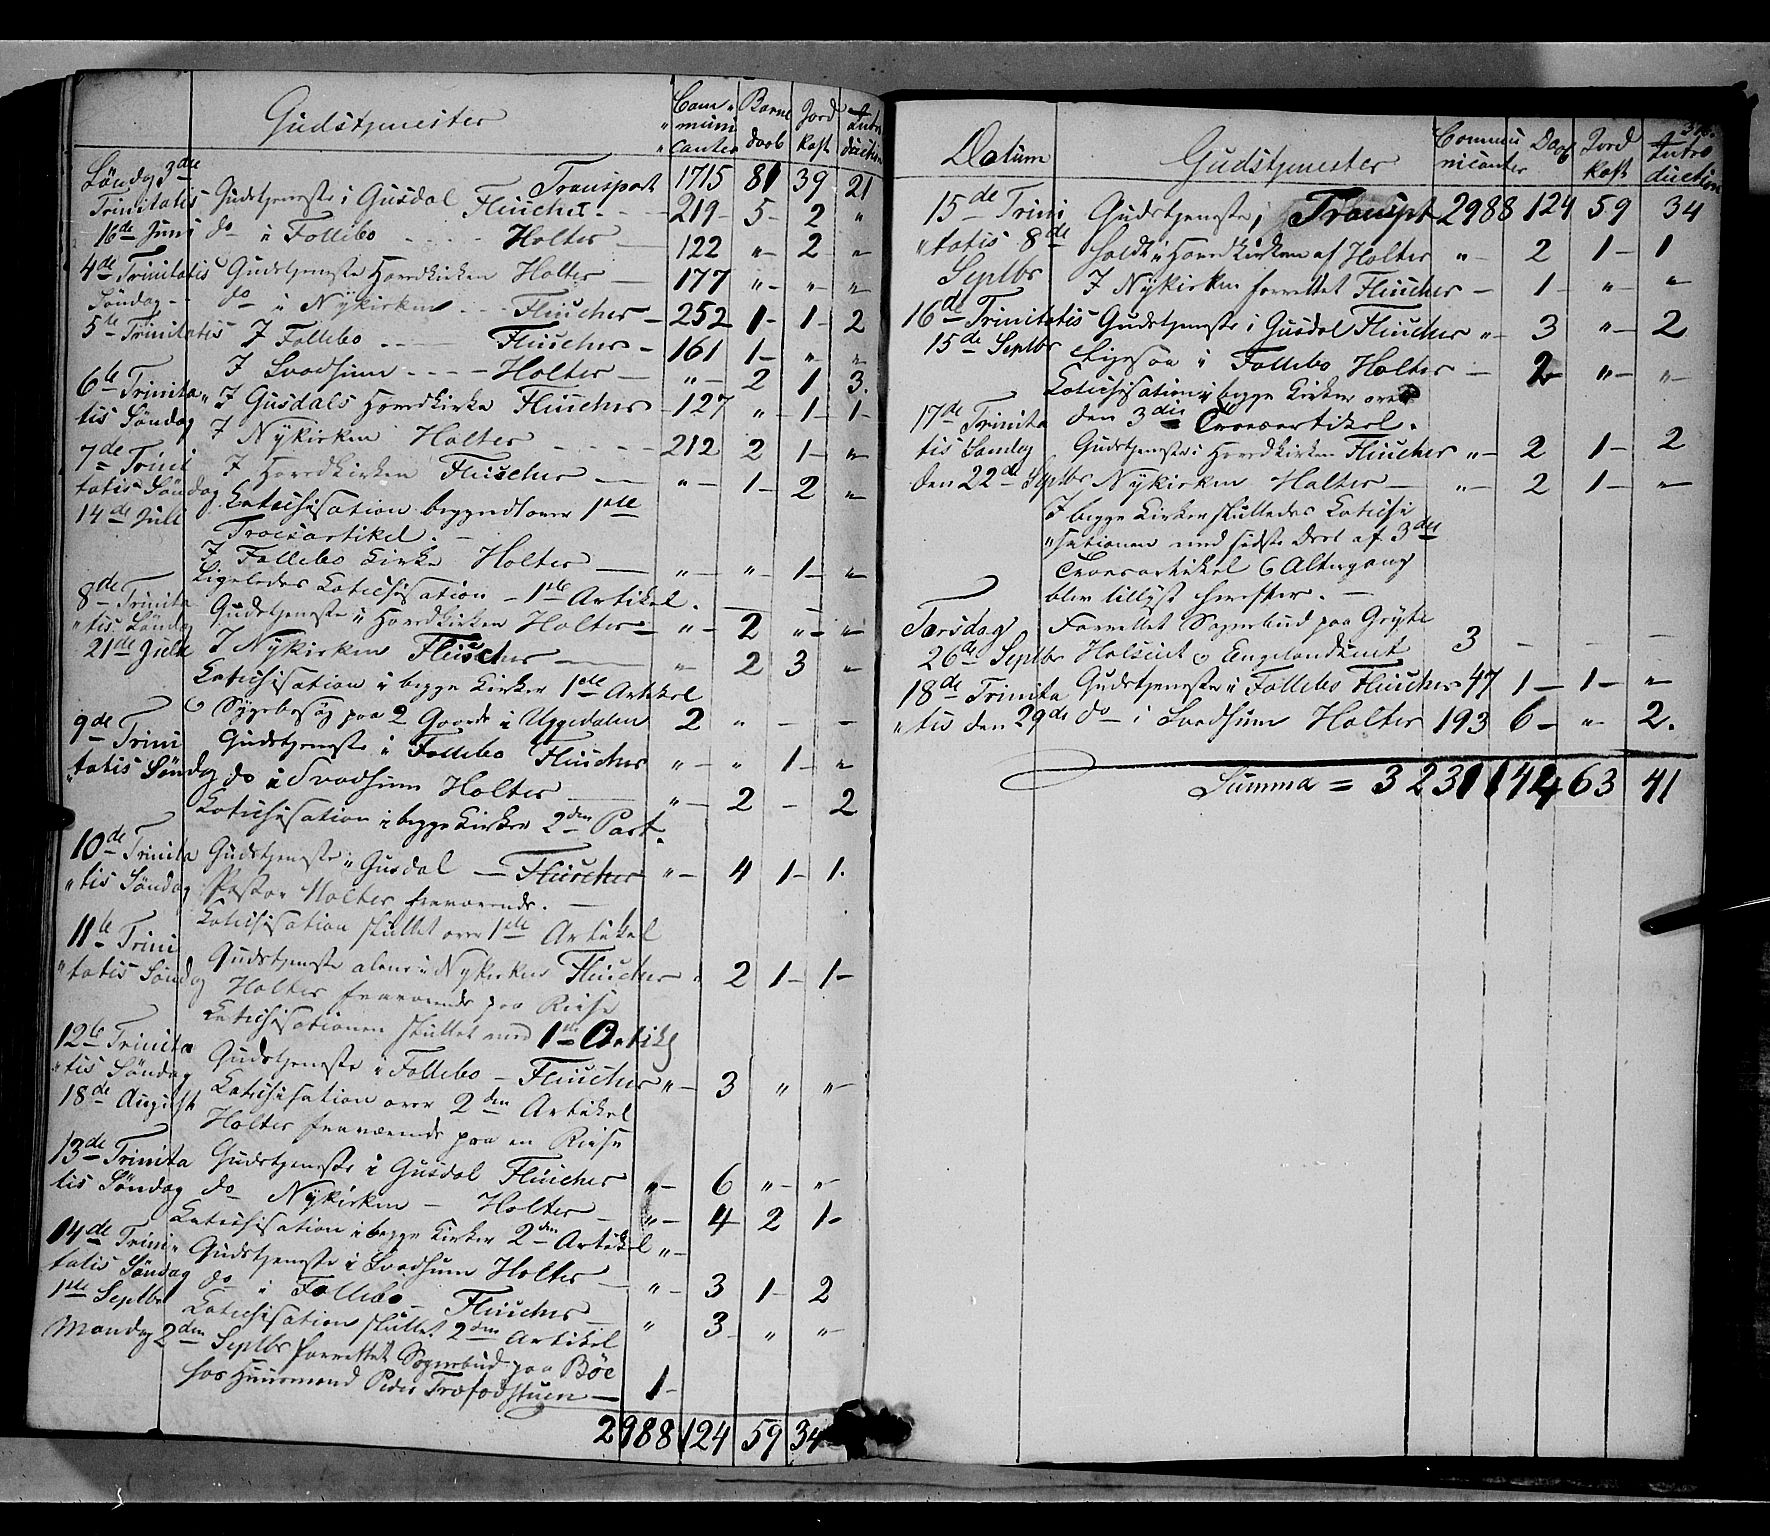 Gudstjenester
Com-
muni
canter
Barne
daab
Jord
kast
Intro
duction
Søndag 3die Transport 1715 81 39 21
Trinitatis Gudstjeneste i Gusdal Fluicher 219 5 2 "
16de Juni do i Follebo Holter 122 " 2 "
4de Trinitatis Gudstjeneste Hovedkirken Holter 177 " " "
Søndag do i Nykirken Fluicher 252 1 1 2
5te Trinitatis I Follebo Fluicher 161 1 " "
I Svadsum Holter " 2 1 3
6te Trinita I Gusdals Hovedkirke Fluicher 127 " 1 1
tis Søndag I Nykirken Holter 212 2 1 "
7de Trini I Hovedkirken Fluicher " 1 2 "
tatis Søndag Catechisation over 1ste
14de Juli Troesartikel.
I Follebo Kirke Holter " " 1 "
Ligeledes Catechisation 1ste Artikel.
8de Trinita Gudstjeneste i Hovedkirken Holter " 2 " "
tis Søndag
21de Julii I Nykirken Fluicher " 2 3 "
Catechisation i begge Kirker 1ste Artikel
Sygebesøg paa 2 Gaarde i Uggedalen 2 " - -
9de Trini Gudstjeneste i Follebo Fluicher " " 1 "
tatis Søndag do i Svadsum Holter " 2 - 2
Catechisation i begge Kirker 2den Part.
10de Trinita Gudstjeneste i Gusdal Fluicher " 4 1 1
tis Søndag Pastor Holter fraværende.
Catechisation sluttet over 1ste Artikel
11te Trini Gudstjeneste alene i Nykirken Fluicher " 2 1 1
tatis Søndag Holter fraværende paa Reise
Catechisationen sluttet med 1ste Artikel
12te Trinita Gudstjeneste i Follebo Fluicher " 3 " "
tis Søndag Catechisation over 2den Artikel
18de August Holter fraværende paa en Reise
13de Trinita Gudstjeneste i Gusdal Fluicher " 6 " "
tis Søndag do Nykirken Holter " 4 2 1
Catechisation i begge Kirker 2den Artikel "
14de Trini Gudstjeneste i Svadsum Holter " 3 1 2
tatis Søndag do i Follebo Fluicher " 3 " "
1ste Septbr Catechisation sluttet 2den Artikel
Mandag 2den Septbr forrettet Sognebud paa Böe
hos Huusmand Peder Træfodstuen 1
2988 124 59 34
Datum
Gudstjenester
Commu
nicanter
Daab
Jord
kast
Intro
duction
15de Trini Gudstjeneste Transpt 2988 124 59 34
tatis 8de holdt i Hovedkirken af Holter " 2 1 1
Septbr I Nykirken forrettet Fluicher 1 " "
16de Trinitatis Gudstjeneste i Gusdal Fluicher " 3 " 2
15de Septbr Ligesaa i Follebo Holter 2 " "
Catechisation i begge Kirker over
17de Trinita den 3die Troesartikel.
tis Søndag Gudstjeneste i Hovedkirken Fluicher " 2 1 2
den 22de Septbr Nykirken Holter " 2 1 "
I begge Kirker sluttedes Catechi
sationen med sidste Deel af 3die
Troesartikel & Altergang
blev tillyst herefter.
Torsdag Forrettet Sognebud paa Gryte 3 - - -
26de Septbr Holseiet & Engelandseiet
18de Trinita Gudstjeneste i Follebo Fluicher 47 1 1 "
tis den 29de do i Svadsum Holter 193 6 " 2.
Summa = 3231 144 63 41